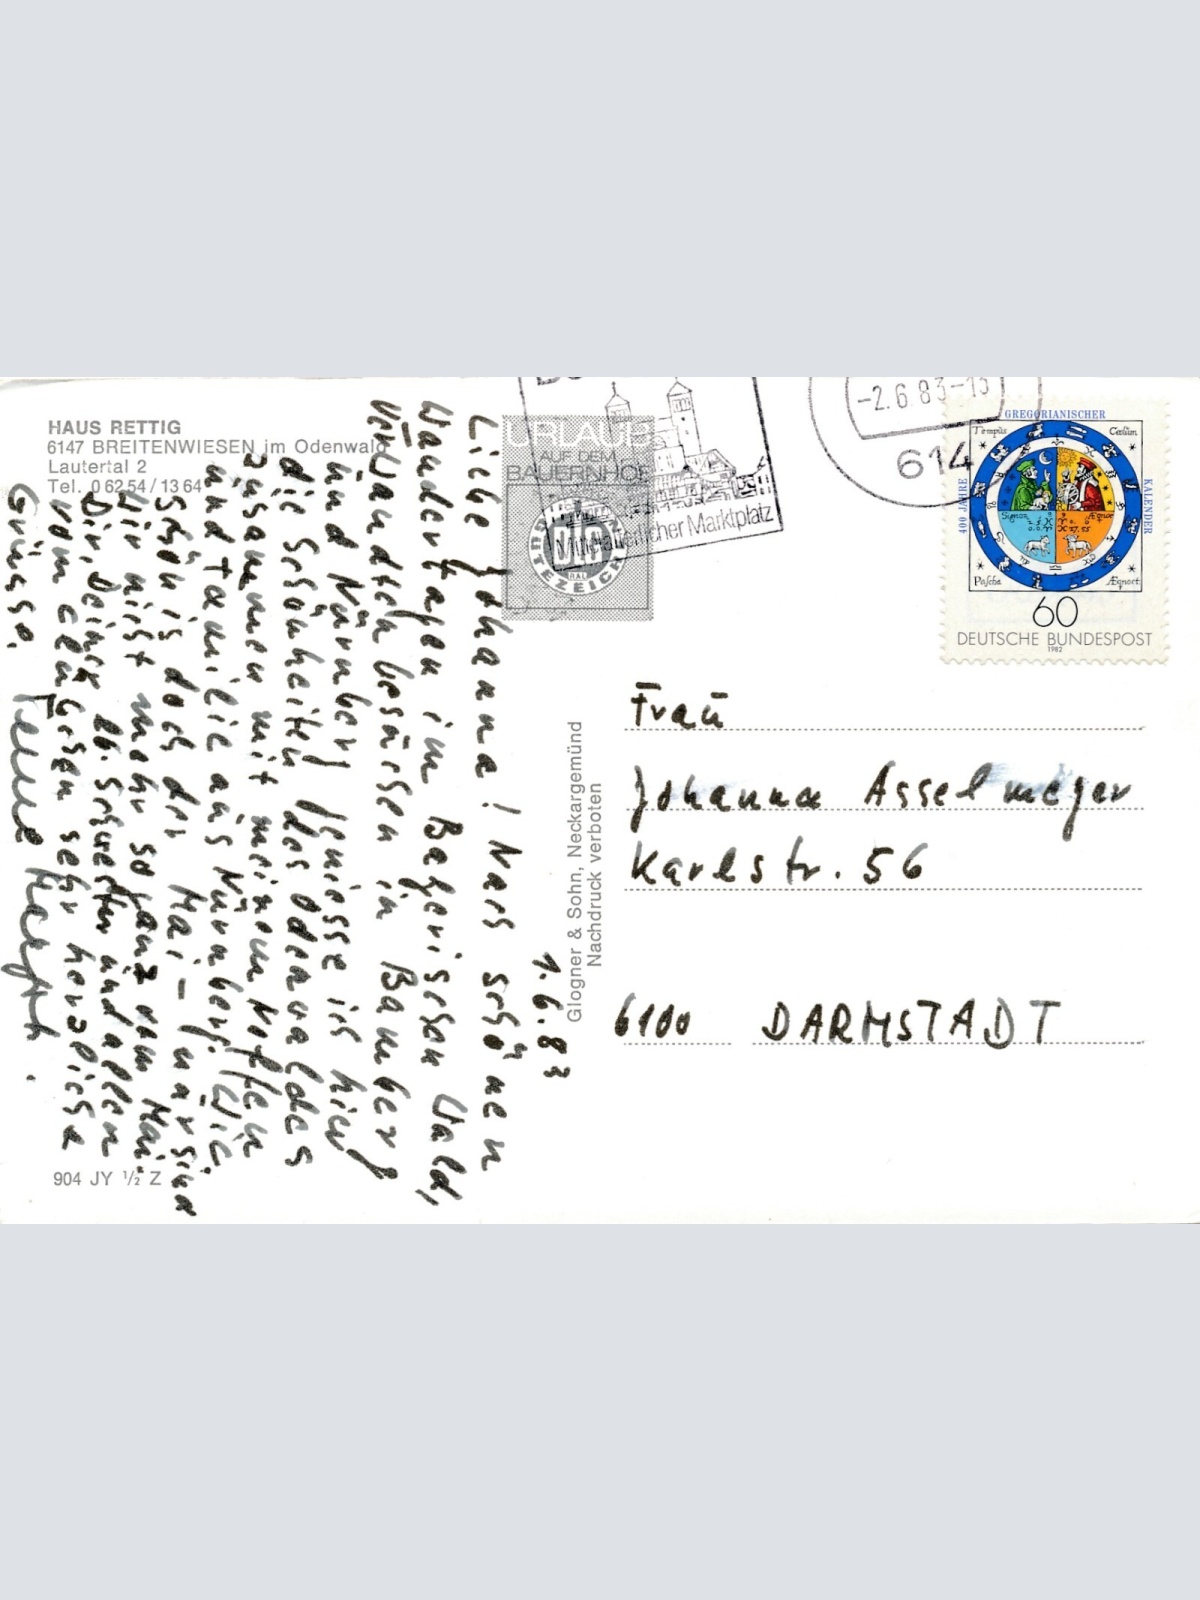 HAUS RETTIG
6147 BREITENWIESEN im Odenwald
Lautertal 2
Tel. 0 62 54 / 13 64
1.6.83
Liebe Johanna! Nach schönen
Wandertagen im Bayerischen Wald,
Verwandten besuchen in Bamberg
und Nürnberg genieße ich hier
die Schönheiten des Odenwaldes
zusammen mit meinem Neffen
und Familie aus Nürnberg. Wie
schön ist doch der Mai – nur sind
wir nicht mehr so ganz vom Mai.
Dir, Deiner lb. Schwester und allen
vom cen sehr herzliche
Grüsse.
904 JY ½ Z
URLAUB
AUF DEM
BAUERNHOF
GÜTEZEICHEN
Mittelalterlicher Marktplatz
-2.6.83-13
614
400 JAHRE
GREGORIANISCHER
KALENDER
Tempus
Cœlum
Signor
Ægnor
Pascha
Ægnoct
60
DEUTSCHE BUNDESPOST
1982
Glogner & Sohn, Neckargemünd
Nachdruck verboten
Frau
Johanna Asselmeyer
Karlstr. 56
6100 DARMSTADT